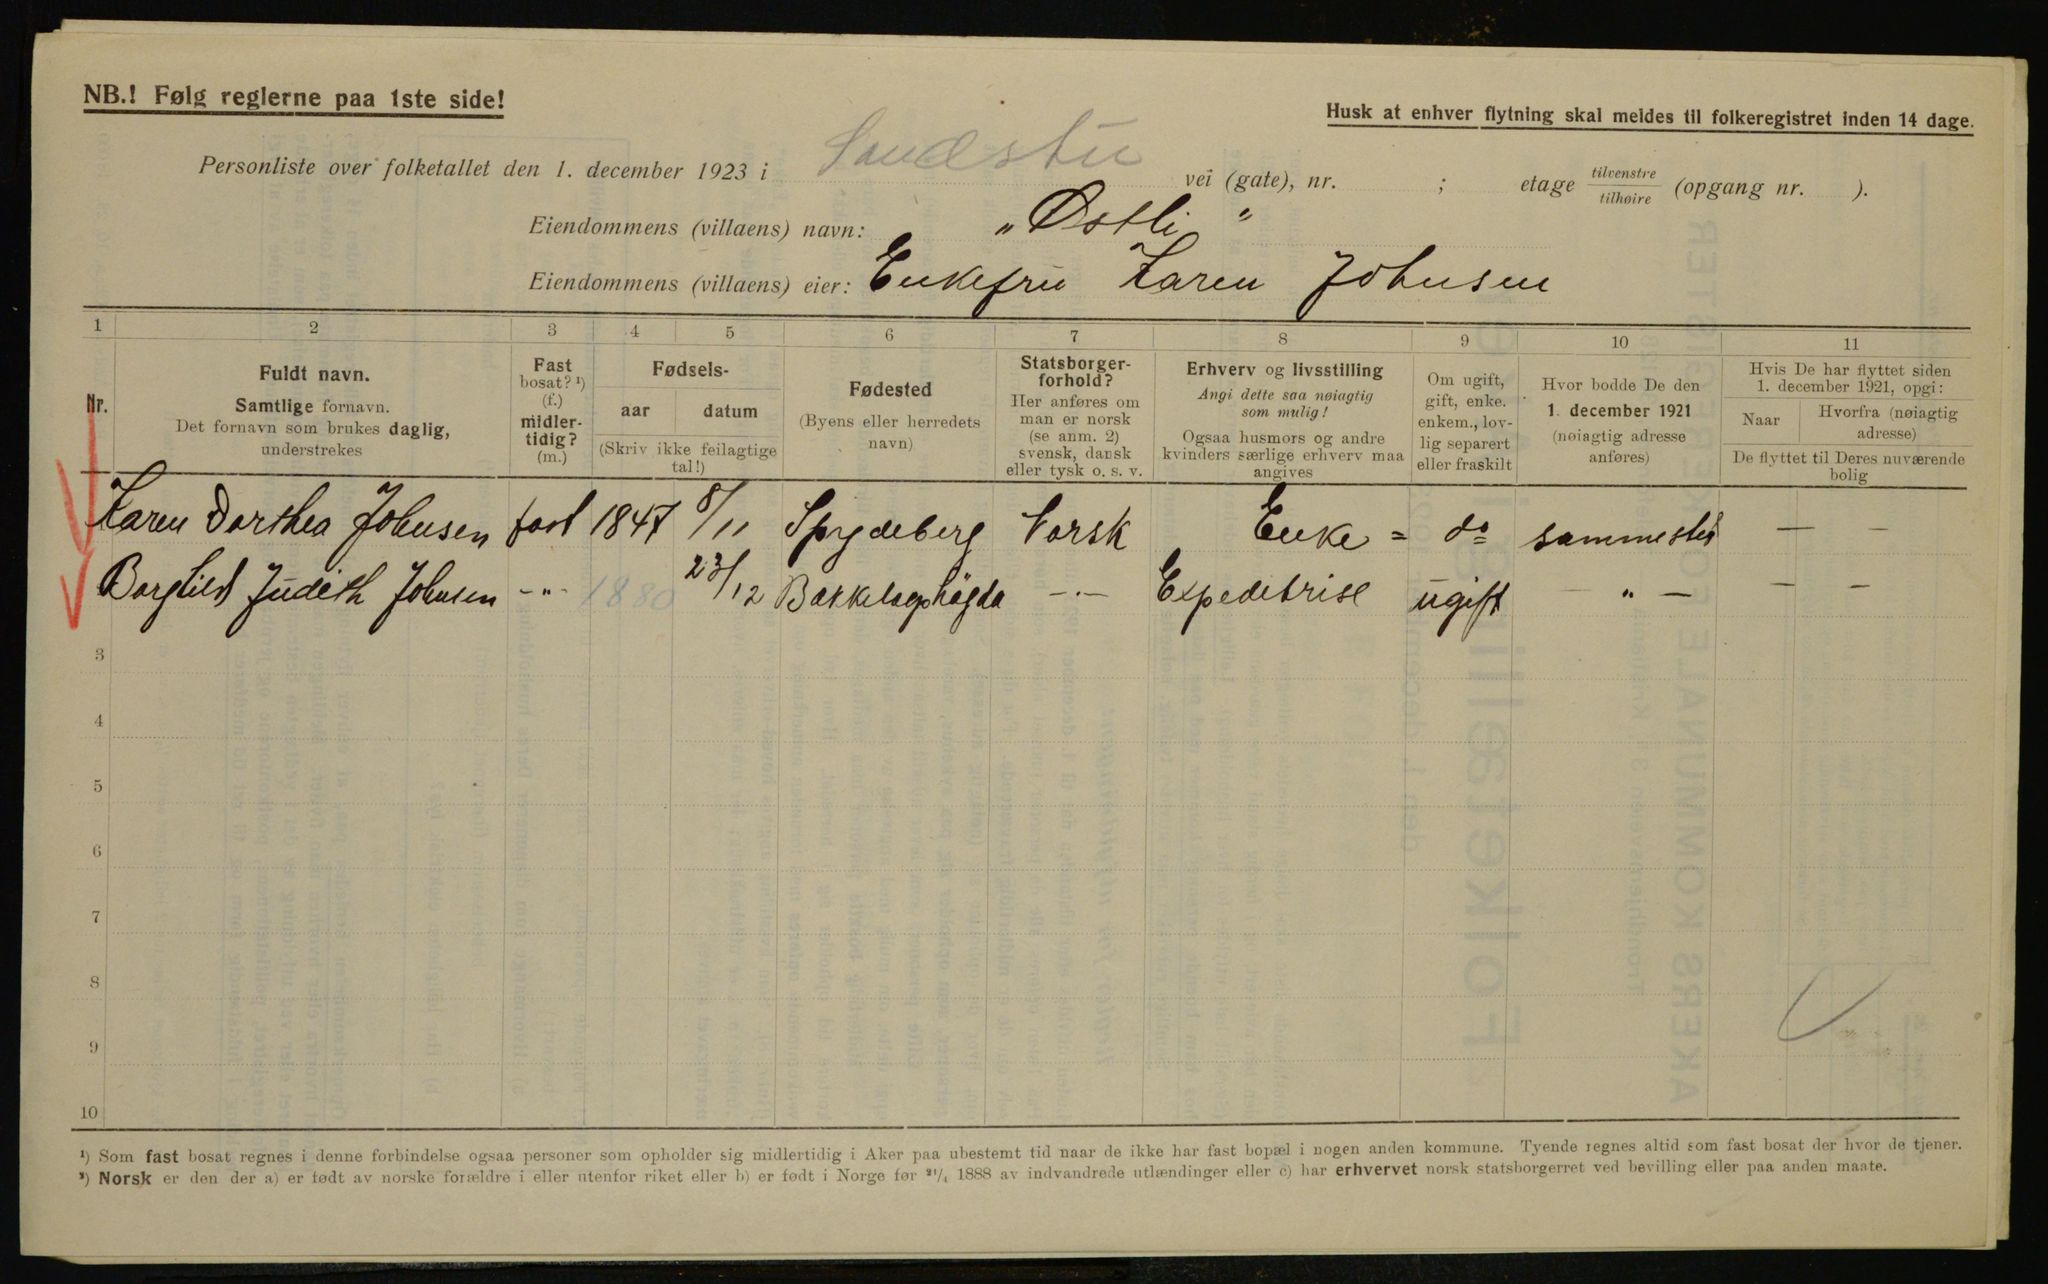 NB.! Følg reglerne paa 1ste side!
Husk at enhver flytning skal meldes til folkeregistret inden 14 dage.
Personliste over folketallet den 1. december 1923 i Sandstu vei (gate), nr. ; etage tilvenstre/tilhøire (opgang nr. ).
Eiendommens (villaens) navn: „Østli“
Eiendommens (villaens) eier: Enkefru Karen Johnsen
1 2 3 4 5 6 7 8 9 10 11
Nr.
Fuldt navn.
Samtlige fornavn.
Det fornavn som brukes daglig,
understrekes
Fast
bosat? ¹)
(f.)
midler-
tidig?
(m.)
Fødsels-
aar datum
(Skriv ikke feilagtige
tal!)
Fødested
(Byens eller herredets
navn)
Statsborger-
forhold?
Her anføres om
man er norsk
(se anm. 2)
svensk, dansk
eller tysk o. s. v.
Erhverv og livsstilling
Angi dette saa nøiagtig
som mulig!
Ogsaa husmors og andre
kvinders særlige erhverv maa
angives
Om ugift,
gift, enke.
enkem., lov-
lig separert
eller fraskilt
Hvor bodde De den
1. december 1921
(nøiagtig adresse
anføres)
Hvis De har flyttet siden
1. december 1921, opgi:
Naar
Hvorfra (nøiagtig
adresse)
De flyttet til Deres nuværende
bolig
Karen Dorthea Johnsen fast 1847 8/11 Spydeberg Norsk Enke = do sammested — —
Borghild Judith Johnsen -„- 1880 23/12 Bækkelagshögda -„- Expeditrise ugift — „ — — —
3
4
5
6
7
8
9
10
¹) Som fast bosat regnes i denne forbindelse ogsaa personer som opholder sig midlertidig i Aker paa ubestemt tid naar de ikke har fast bopæl i nogen anden kommune. Tyende regnes altid som fast bosat der hvor de tjener.
²) Norsk er den der a) er født av norske forældre i eller utenfor riket eller b) er født i Norge før ²¹/₄ 1888 av indvandrede utlændinger eller c) har erhvervet norsk statsborgerret ved bevilling eller paa anden maate.